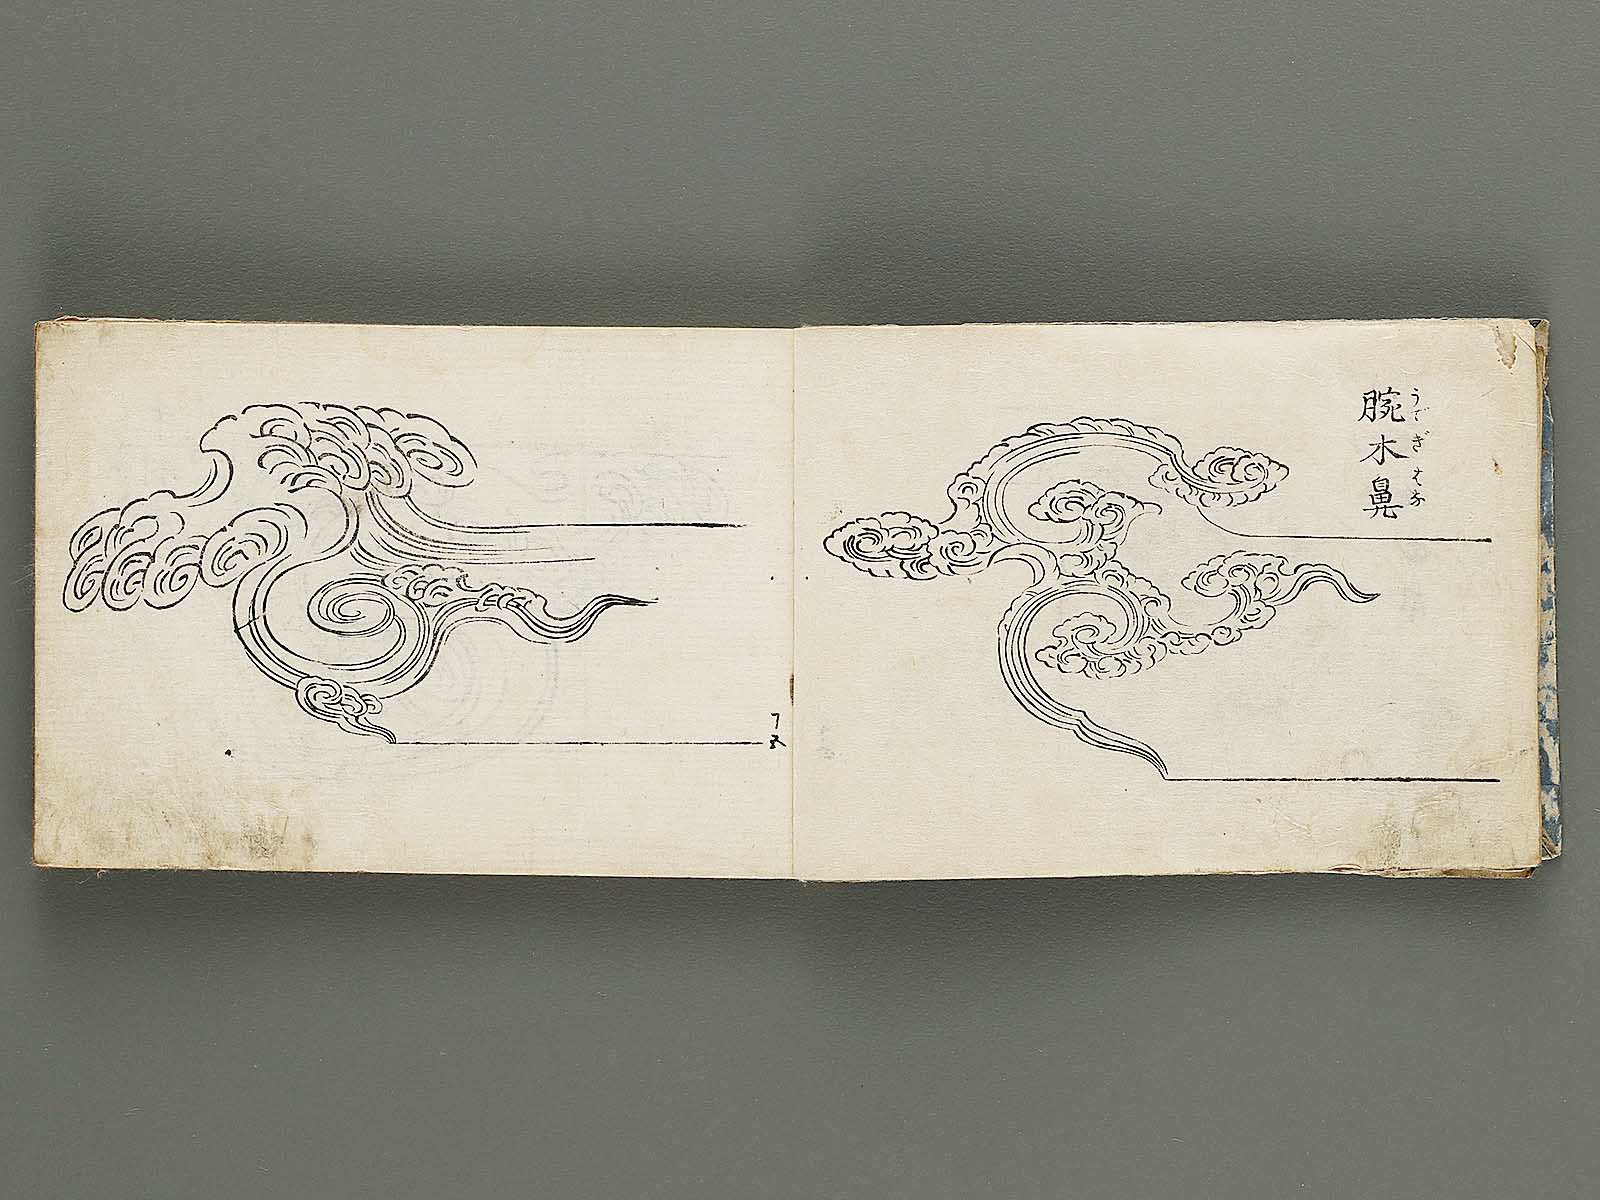 腕木鼻
うでぎはな